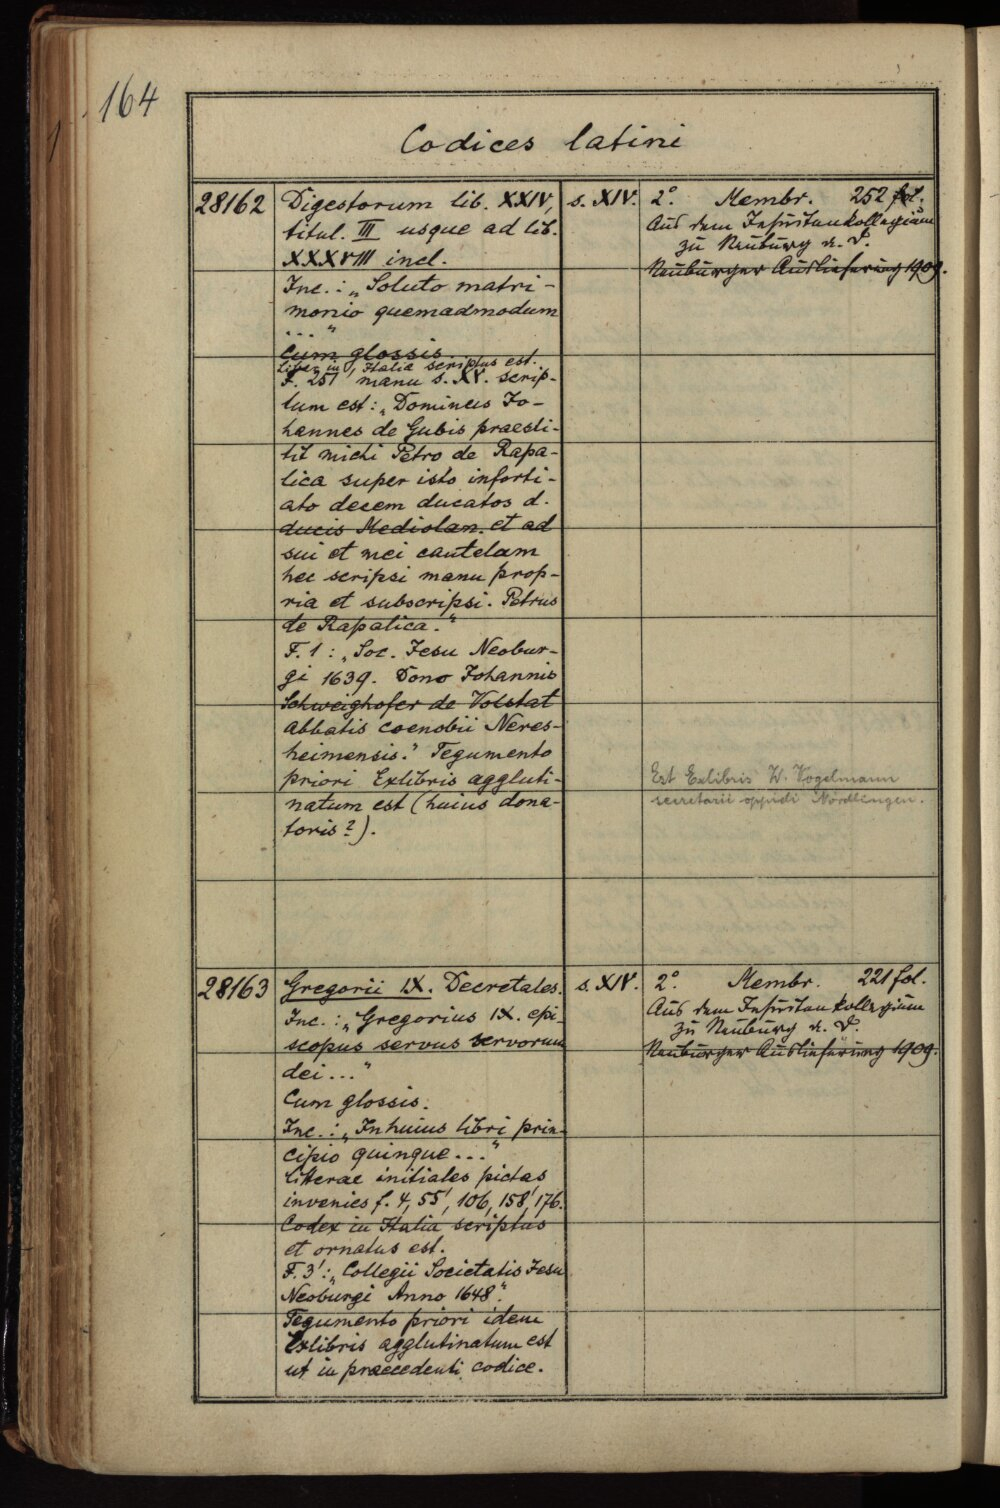 164
Codices latini
28162
Digestorum lib. XXIV,
titul. III usque ad lib.
XXXVIII incl.
Inc.: „Soluto matri-
monio quemadmodum
..."
Cum glossis
Liber in Italia scriptus est.
F. 251' manu s. XV. scrip-
tum est: „Dominus Jo-
hannes de Gubis praesti-
tit michi Petro de Rapa-
lica super isto inforti-
ato decem ducatos d.
ducis Mediolan. et ad
sui et mei cautelam
hec scripsi manu prop-
ria et subscripsi. Petrus
de Rapalica."
F. 1: „Soc. Jesu Neobur-
gi 1639. Dono Johannis
Schweighofer de Volstat
abbatis coenobii Neres-
heimensis." Tegumento
priori Exlibris aggluti-
natum est (huius dona-
toris?).
s. XIV.
2°. Membr. 252 fol.
Aus dem Jesuitenkollegium
zu Neuburg a. D.
Neuburger Auslieferung 1909.
Est Exlibris W. Vogelmann
secretarii oppidi Nördlingen.
28163
Gregorii IX. Decretales.
Inc.: „Gregorius IX. epi-
scopus servus servorum
dei..."
Cum glossis.
Inc.: „In huius libri prin-
cipio quinque..."
Literae initiales pictas
invenies f. 4, 55', 106, 158', 176.
Codex in Italia scriptus
et ornatus est.
F. 3': „Collegii Societatis Jesu
Neoburgi Anno 1648".
Tegumento priori idem
Exlibris agglutinatum est
ut in praecedenti codice.
s. XIV.
2°. Membr. 221 fol.
Aus dem Jesuitenkollegium
zu Neuburg a. D.
Neuburger Auslieferung 1909.